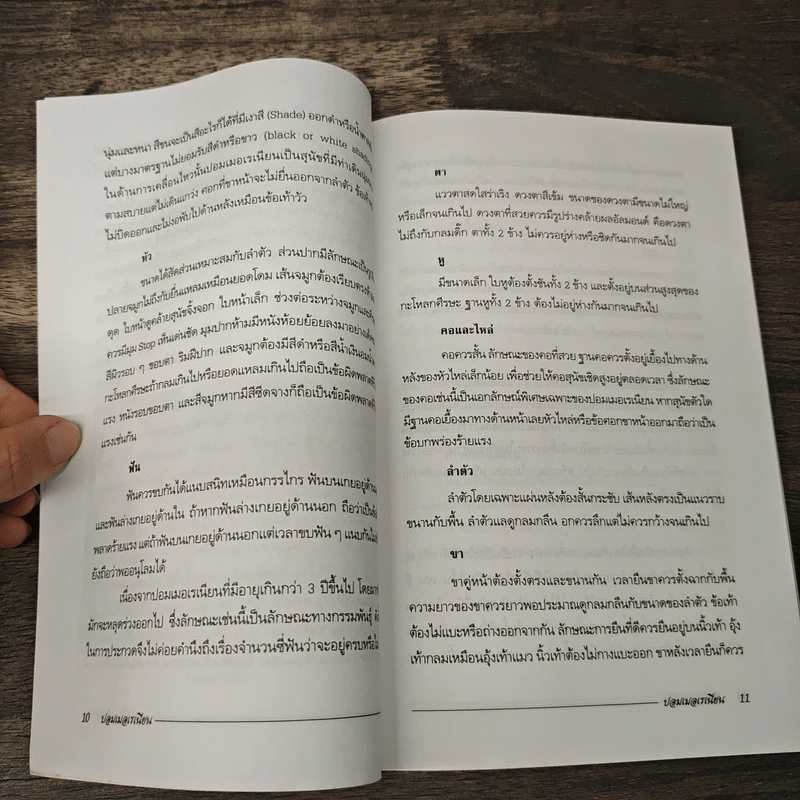 นุ่มและหนา สีขนจะเป็นสีอะไรก็ได้ที่มีเงาสี (Shade) ออกดำหรือน้ำตาล
แต่บางมาตรฐานไม่ยอมรับสีดำหรือขาว (black or white shad
ในด้านการเคลื่อนไหวนั้นปอมเมอเรเนียนเป็นสุนัขที่มีท่าเดิน
ตามสบายแต่ไม่เดินแกว่ง ศอกที่ขาหน้าจะไม่ยื่นออกจากลำตัว ข้อเท้า
ไม่บิดออกและไม่งอพับไปด้านหลังเหมือนข้อเท้าวัว
หัว
ขนาดได้สัดส่วนเหมาะสมกับลำตัว ส่วนปากมีลักษณะเป็น
ปลายจมูกไม่ถึงกับยื่นแหลมเหมือนยอดโดม เส้นจมูกต้องเรียบตรง
ดุด ใบหน้าดูคล้ายสุนัขจิ้งจอก ใบหน้าเล็ก ช่วงต่อระหว่างจมูกและ
ควรมีมุม Stop เห็นเด่นชัด มุมปากห้ามมีหนังห้อยย้อยลงมาอย่าง
สีผิวรอบ ๆ ขอบตา ริมฝีปาก และจมูกต้องมีสีดำหรือสีน้ำเงินอม
กะโหลกศีรษะถ้ากลมเกินไปหรือยอดแหลมเกินไปถือเป็นข้อผิดพลาด
แรง หนังรอบขอบตา และสีจมูกหากมีสีซีดจางก็ถือเป็นข้อผิดพลาด
แรงเช่นกัน
ฟัน
ฟันควรขบกันได้แนบสนิทเหมือนกรรไกร ฟันบนเกยอยู่ด้าน
และฟันล่างเกยอยู่ด้านใน ถ้าหากฟันล่างเกยอยู่ด้านนอก ถือว่าเป็น
พลาดร้ายแรง แต่ถ้าฟันบนเกยอยู่ด้านนอกแต่เวลาขบฟัน ๆ แนบกัน
ยังถือว่าพออนุโลมได้
เนื่องจากปอมเมอเรเนียนที่มีอายุเกินกว่า 3 ปีขึ้นไป โดย
มักจะหลุดร่วงออกไป ซึ่งลักษณะเช่นนี้เป็นลักษณะทางกรรมพันธุ์
ในการประกวดจึงไม่ค่อยคำนึงถึงเรื่องจำนวนซี่ฟันว่าจะอยู่ครบหรือ
10 ปอมเมอเรเนียน
ตา
แววตาสดใสร่าเริง ดวงตาสีเข้ม ขนาดของดวงตามีขนาดไม่ใหญ่
หรือเล็กจนเกินไป ดวงตาที่สวยควรมีรูปร่างคล้ายผลอัลมอนด์ คือดวงตา
ไม่ถึงกับกลมดิ๊ก ตาทั้ง 2 ข้าง ไม่ควรอยู่ห่างหรือชิดกันมากจนเกินไป
หู
มีขนาดเล็ก ใบหูต้องตั้งชันทั้ง 2 ข้าง และตั้งอยู่บนส่วนสูงสุดของ
กะโหลกศีรษะ ฐานหูทั้ง 2 ข้าง ต้องไม่อยู่ห่างกันมากจนเกินไป
คอและไหล่
คอควรสั้น ลักษณะของคอที่สวย ฐานคอควรตั้งอยู่เยื้องไปทางด้าน
หลังของหัวไหล่เล็กน้อย เพื่อช่วยให้คอสุนัขเชิดสูงอยู่ตลอดเวลา ซึ่งลักษณะ
ของคอเช่นนี้เป็นเอกลักษณ์พิเศษเฉพาะของปอมเมอเรเนียน หากสุนัขตัวใด
มีฐานคอเยื้องมาทางด้านหน้าเลยหัวไหล่หรือข้อศอกขาหน้าออกมาถือว่าเป็น
ข้อบกพร่องร้ายแรง
ลำตัว
ลำตัวโดยเฉพาะแผ่นหลังต้องสั้นกระชับ เส้นหลังตรงเป็นแนวราบ
ขนานกับพื้น ลำตัวแลดูกลมกลืน อกควรลึกแต่ไม่ควรกว้างจนเกินไป
ขา
ขาคู่หน้าต้องตั้งตรงและขนานกัน เวลายืนขาควรตั้งฉากกับพื้น
ความยาวของขาควรยาวพอประมาณดูกลมกลืนกับขนาดของลำตัว ข้อเท้า
ต้องไม่แบะหรือถ่างออกจากกัน ลักษณะการยืนที่ดีควรยืนอยู่บนนิ้วเท้า อุ้ง
เท้ากลมเหมือนอุ้งเท้าแมว นิ้วเท้าต้องไม่กางแบะออก ขาหลังเวลายืนก็ควร
ปอมเมอเรเนียน 11